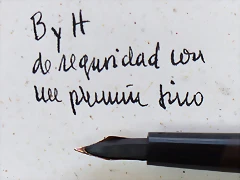 B y H
de seguridad con
un plumín fino